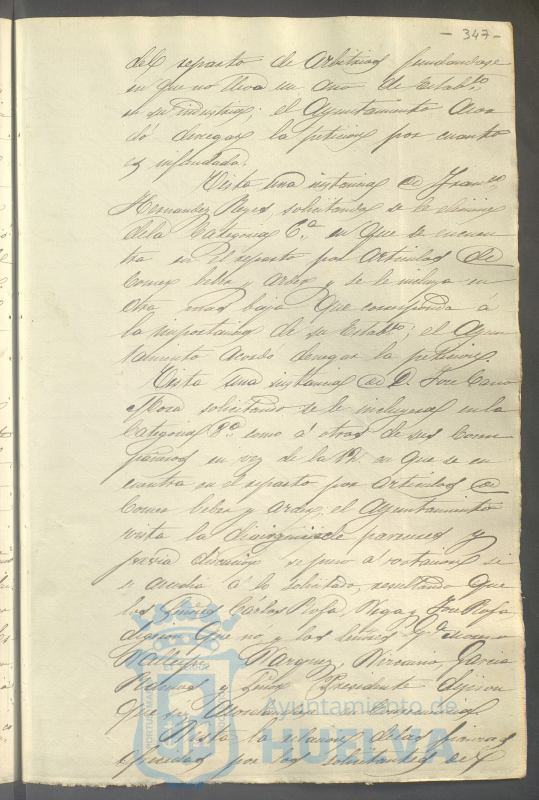 - 347 -
del reparto de Arbitrios fundandose
en que no lleva un año de Establo.
en su industria; el Ayuntamiento Acor
dó denegar la peticion por cuanto
es infundada.
Vista una instancia de Franco.
Hernandez Reyes, solicitando se le elimine
de la Categoria 6ª en que se encuen
tra en el reparto por articulos de
Comer beber y arder y se le incluya en
otra mas baja que corresponda á
la importancia de su Establo; el Ayun
tamiento acordó denegar la peticion.
Vista una instancia de D. Jose Cano
Mora solicitando se le incluya en la
Categoria 8ª como á otros de sus Com
pañeros en vez de la 12. en que se en
cuentra en el reparto por articulos de
Comer beber y arder, el Ayuntamiento
vista la divergencia de pareceres y
previa discusion se puso á votacion si
se accedia á lo solicitado, resultando que
los Señores Cárlos Rofa, Vega y Jose Rofa
digeron que no y los Señores
Marquez, Garcia
y Señor Presidente dijeron
que si,
Vista la relacion de las
por los solicitantes
Ayuntamiento de
HUELVA